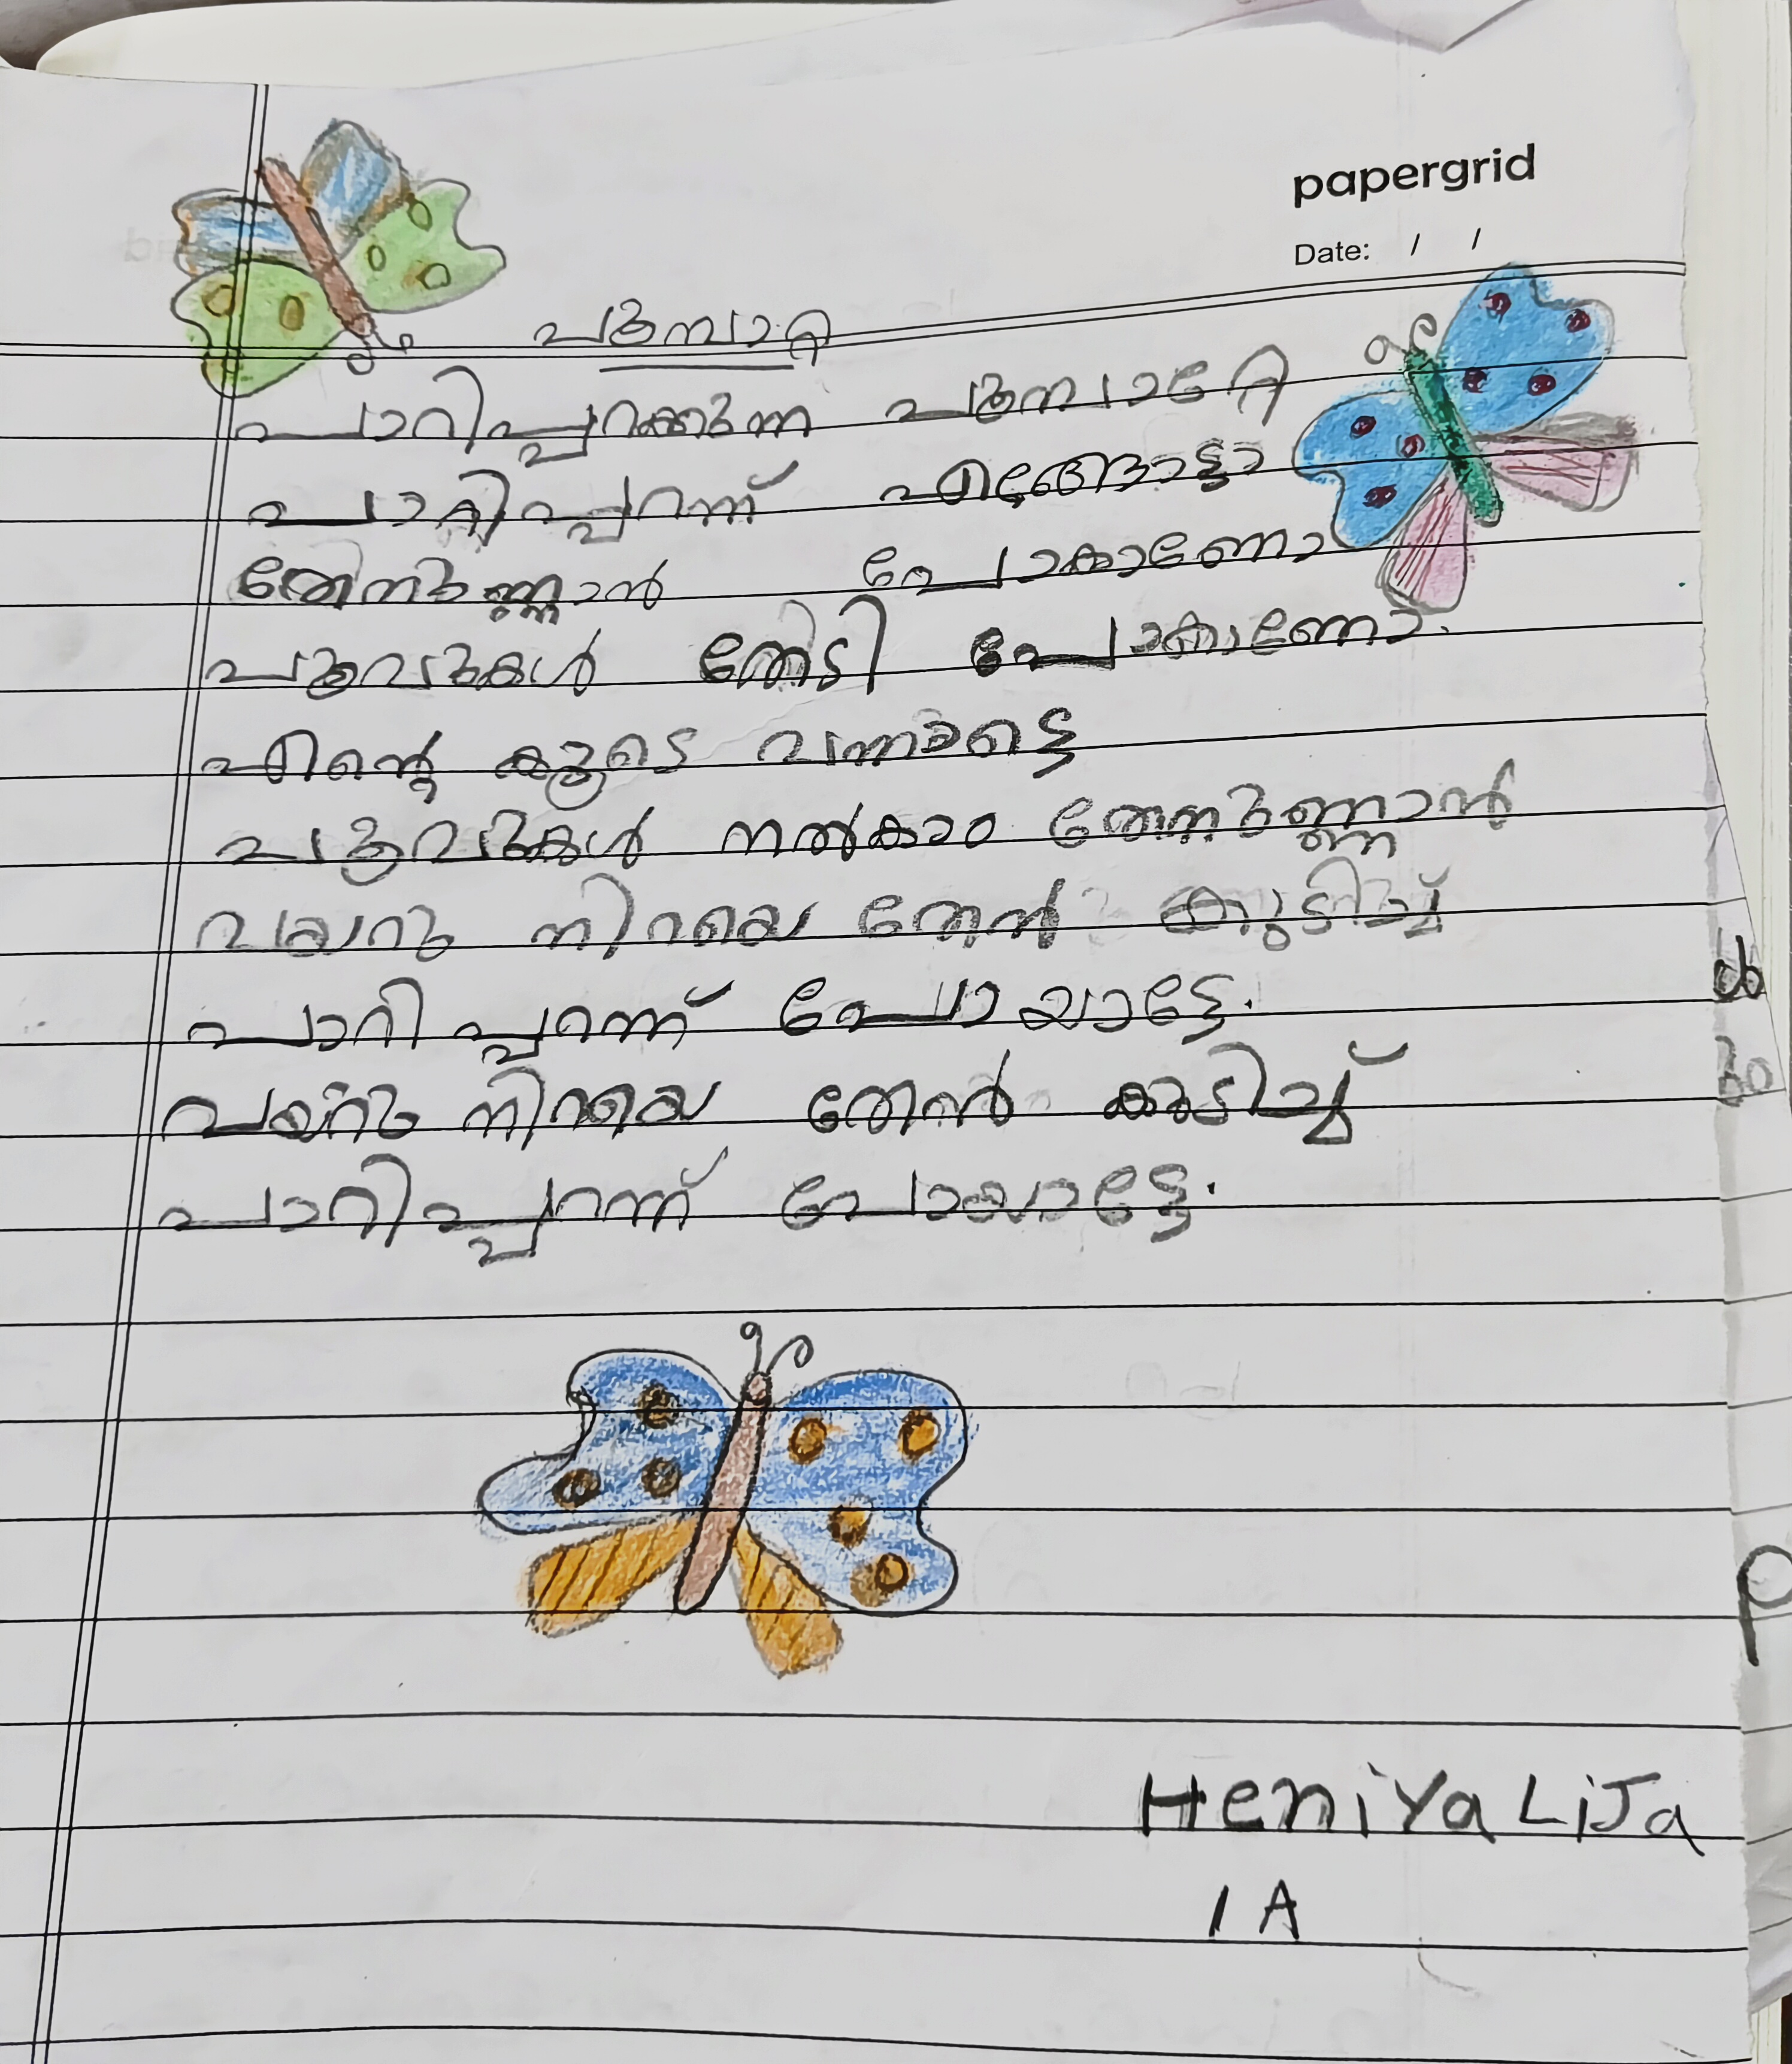 papergrid
Date: / /
പൂമ്പാറ്റ
പാറിപ്പറക്കുന്ന പൂമ്പാറ്റേ
പാറിപ്പറന്ന് എങ്ങോട്ടാ
തേനുണ്ണാൻ പോകാണോ
പൂവുകൾ തേടി പോകാണോ.
എന്റെ കൂടെ വന്നാട്ടെ
പൂവുകൾ നൽകാം തേനുണ്ണാൻ
വയറു നിറയെ തേൻ കുടിച്ച്
പാറിപ്പറന്ന് പോയാട്ടേ.
വയറു നിറയെ തേൻ കുടിച്ച്
പാറിപ്പറന്ന് പോയാട്ടേ.
Heniya Lija
1 A